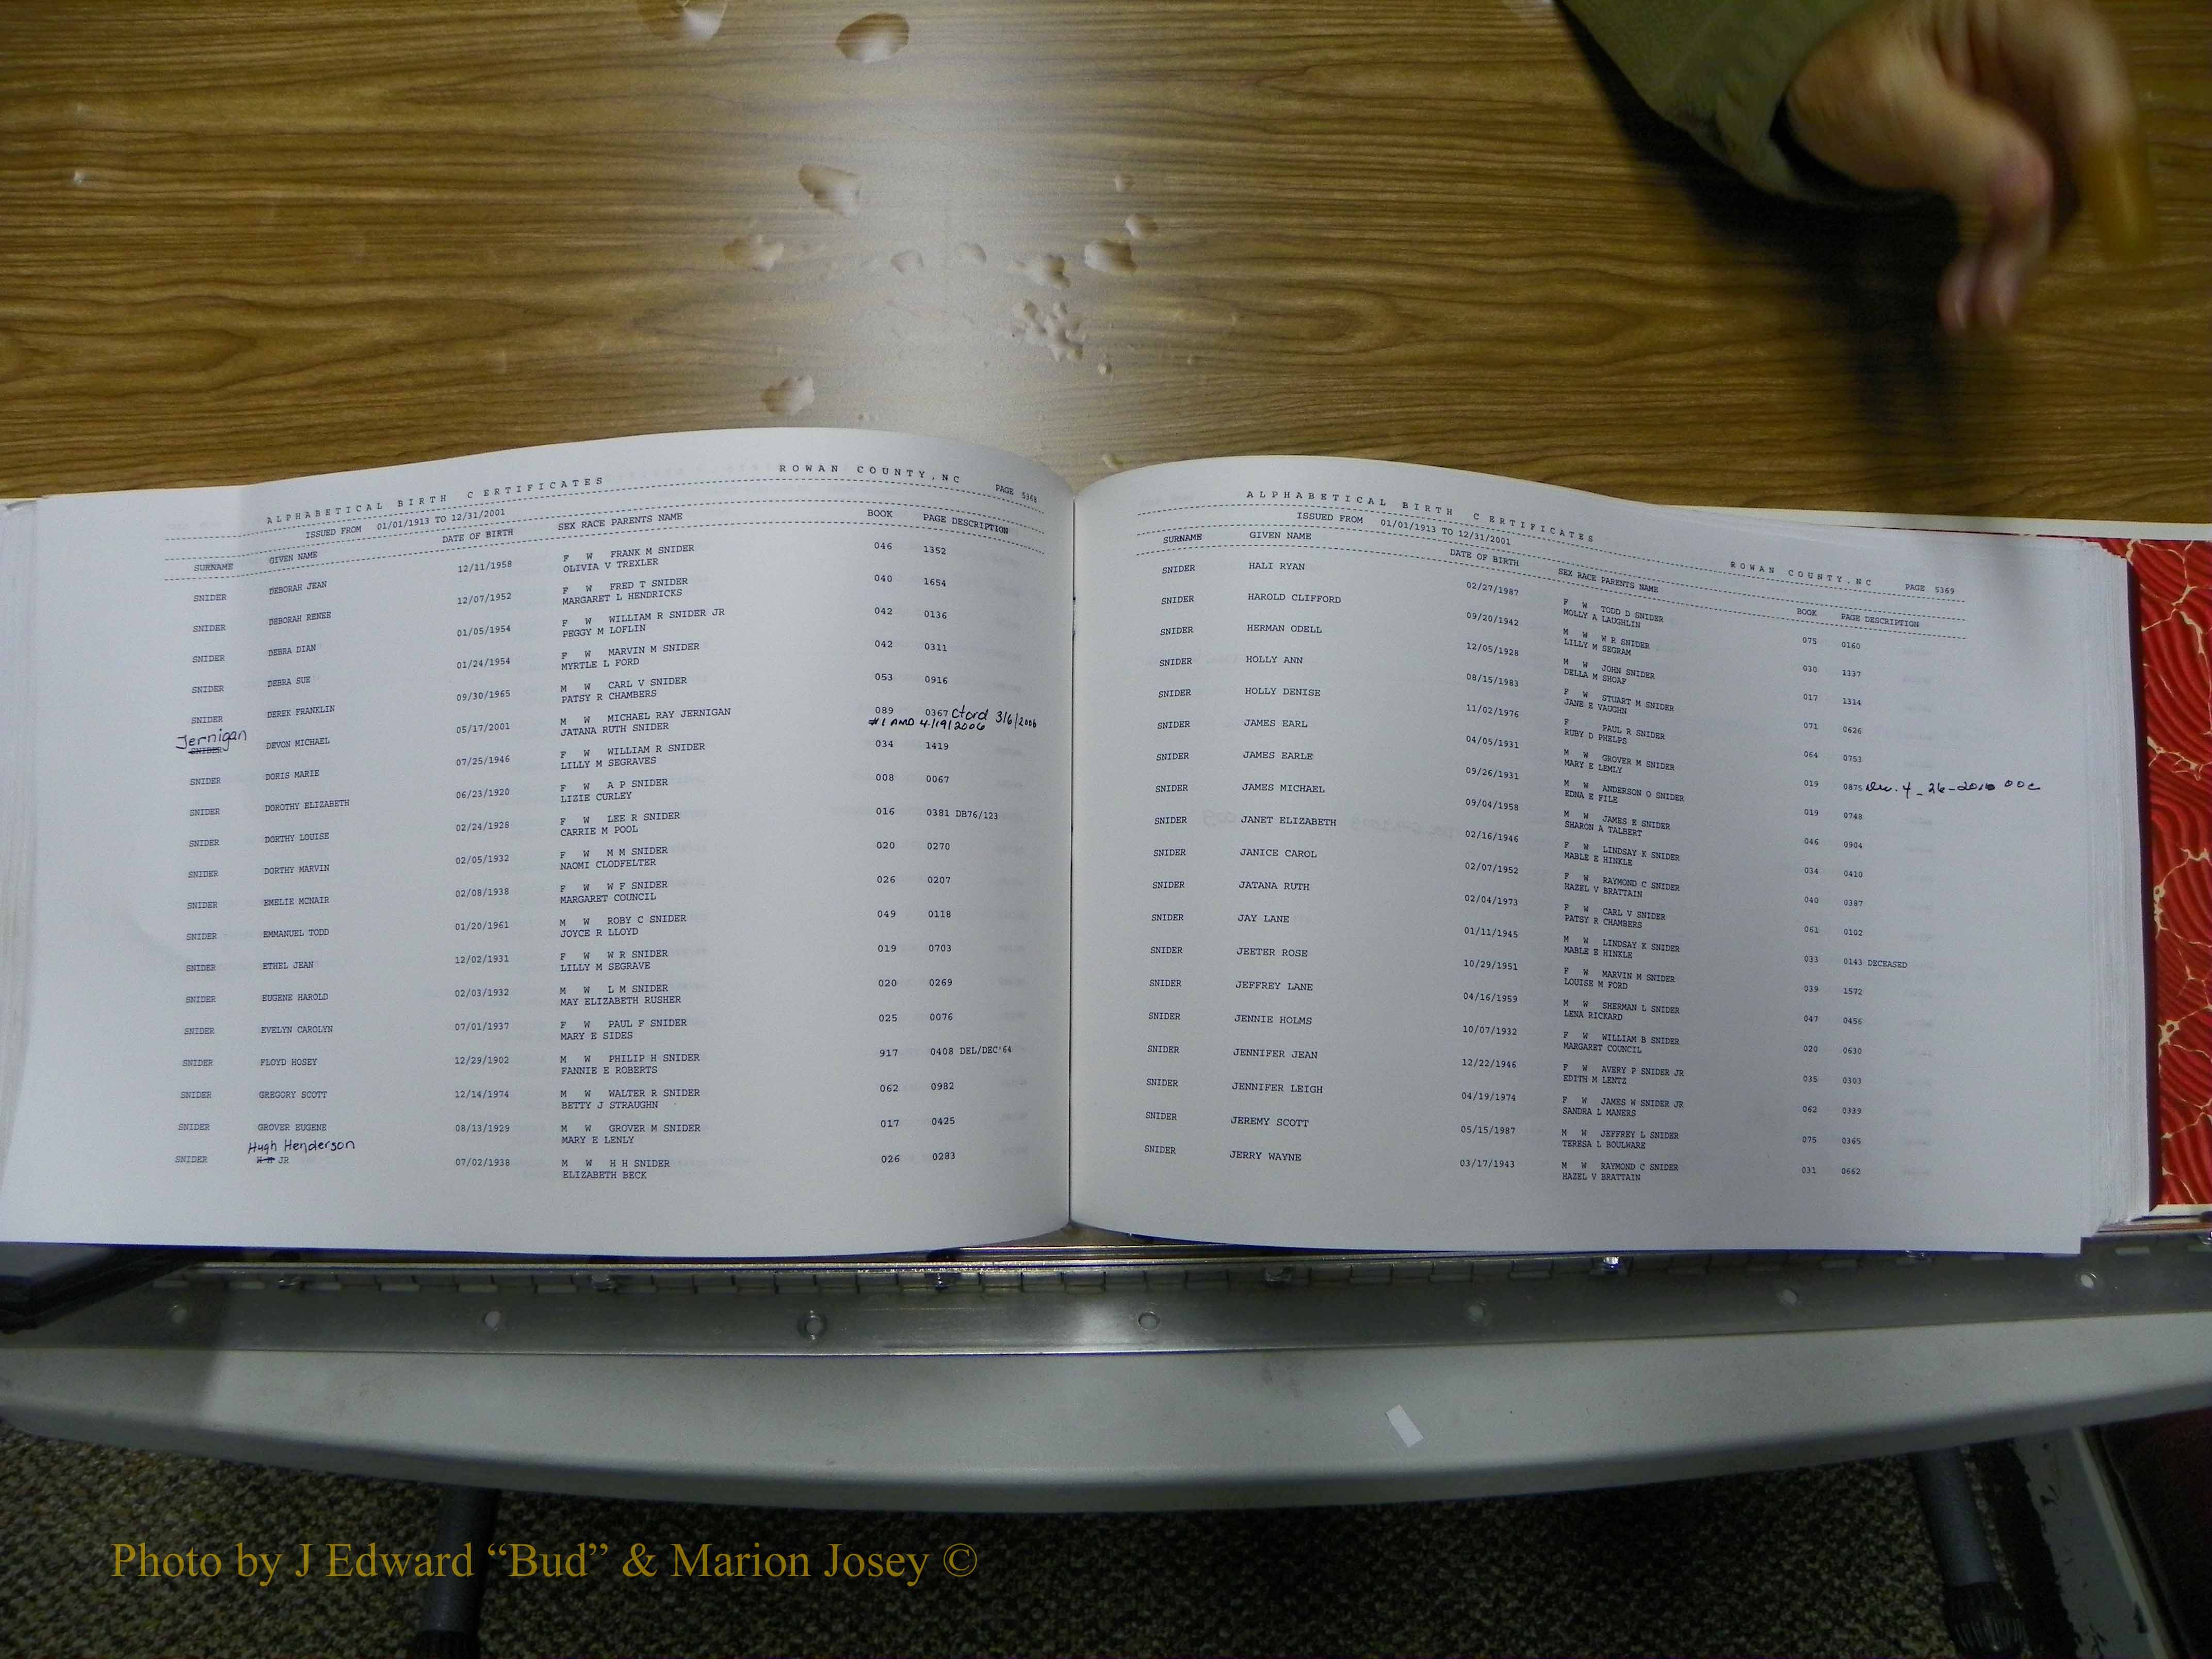 ALPHABETICAL BIRTH CERTIFICATES ROWAN COUNTY,NC PAGE 5368
ISSUED FROM 01/01/1913 TO 12/31/2001
SURNAME GIVEN NAME DATE OF BIRTH SEX RACE PARENTS NAME BOOK PAGE DESCRIPTION
SNIDER DEBORAH JEAN 12/11/1958 F W FRANK M SNIDER 046 1352
OLIVIA V TREXLER
SNIDER DEBORAH RENEE 12/07/1952 F W FRED T SNIDER 040 1654
MARGARET L HENDRICKS
SNIDER DEBRA DIAN 01/05/1954 F W WILLIAM R SNIDER JR 042 0136
PEGGY M LOFLIN
SNIDER DEBRA SUE 01/24/1954 F W MARVIN M SNIDER 042 0311
MYRTLE L FORD
SNIDER DEREK FRANKLIN 09/30/1965 M W CARL V SNIDER 053 0916
PATSY R CHAMBERS
Jernigan
SNIDER DEVON MICHAEL 05/17/2001 M W MICHAEL RAY JERNIGAN 089 0367 Ctord 3/6/2006
JATANA RUTH SNIDER #1 AMD 4/19/2006
SNIDER DORIS MARIE 07/25/1946 F W WILLIAM R SNIDER 034 1419
LILLY M SEGRAVES
SNIDER DOROTHY ELIZABETH 06/23/1920 F W A P SNIDER 008 0067
LIZIE CURLEY
SNIDER DORTHY LOUISE 02/24/1928 F W LEE R SNIDER 016 0381 DB76/123
CARRIE M POOL
SNIDER DORTHY MARVIN 02/05/1932 F W M M SNIDER 020 0270
NAOMI CLODFELTER
SNIDER EMELIE MCNAIR 02/08/1938 F W W F SNIDER 026 0207
MARGARET COUNCIL
SNIDER EMMANUEL TODD 01/20/1961 M W ROBY C SNIDER 049 0118
JOYCE R LLOYD
SNIDER ETHEL JEAN 12/02/1931 F W W R SNIDER 019 0703
LILLY M SEGRAVE
SNIDER EUGENE HAROLD 02/03/1932 M W L M SNIDER 020 0269
MAY ELIZABETH RUSHER
SNIDER EVELYN CAROLYN 07/01/1937 F W PAUL F SNIDER 025 0076
MARY E SIDES
SNIDER FLOYD HOSEY 12/29/1902 M W PHILIP H SNIDER 917 0408 DEL/DEC'64
FANNIE E ROBERTS
SNIDER GREGORY SCOTT 12/14/1974 M W WALTER R SNIDER 062 0982
BETTY J STRAUGHN
SNIDER GROVER EUGENE 08/13/1929 M W GROVER M SNIDER 017 0425
MARY E LENLY
Hugh Henderson
SNIDER H H JR 07/02/1938 M W H H SNIDER 026 0283
ELIZABETH BECK
ALPHABETICAL BIRTH CERTIFICATES ROWAN COUNTY,NC PAGE 5369
ISSUED FROM 01/01/1913 TO 12/31/2001
SURNAME GIVEN NAME DATE OF BIRTH SEX RACE PARENTS NAME BOOK PAGE DESCRIPTION
SNIDER HALI RYAN 02/27/1987 F W TODD D SNIDER 075 0160
MOLLY A LAUGHLIN
SNIDER HAROLD CLIFFORD 09/20/1942 M W W R SNIDER 030 1337
LILLY M SEGRAM
SNIDER HERMAN ODELL 12/05/1928 M W JOHN SNIDER 017 1314
DELLA M SHOAF
SNIDER HOLLY ANN 08/15/1983 F W STUART M SNIDER 071 0626
JANE E VAUGHN
SNIDER HOLLY DENISE 11/02/1976 F PAUL R SNIDER 064 0753
RUBY D PHELPS
SNIDER JAMES EARL 04/05/1931 M W GROVER M SNIDER 019 0875 Dec. 4-26-2010 DOC
MARY E LEMLY
SNIDER JAMES EARLE 09/26/1931 M W ANDERSON O SNIDER 019 0748
EDNA E FILE
SNIDER JAMES MICHAEL 09/04/1958 M W JAMES E SNIDER 046 0904
SHARON A TALBERT
SNIDER JANET ELIZABETH 02/16/1946 F W LINDSAY K SNIDER 034 0410
MABLE E HINKLE
SNIDER JANICE CAROL 02/07/1952 F W RAYMOND C SNIDER 040 0387
HAZEL V BRATTAIN
SNIDER JATANA RUTH 02/04/1973 F W CARL V SNIDER 061 0102
PATSY R CHAMBERS
SNIDER JAY LANE 01/11/1945 M W LINDSAY K SNIDER 033 0143 DECEASED
MABLE E HINKLE
SNIDER JEETER ROSE 10/29/1951 F W MARVIN M SNIDER 039 1572
LOUISE M FORD
SNIDER JEFFREY LANE 04/16/1959 M W SHERMAN L SNIDER 047 0456
LENA RICKARD
SNIDER JENNIE HOLMS 10/07/1932 F W WILLIAM B SNIDER 020 0630
MARGARET COUNCIL
SNIDER JENNIFER JEAN 12/22/1946 F W AVERY P SNIDER JR 035 0303
EDITH M LENTZ
SNIDER JENNIFER LEIGH 04/19/1974 F W JAMES W SNIDER JR 062 0339
SANDRA L MANERS
SNIDER JEREMY SCOTT 05/15/1987 M W JEFFREY L SNIDER 075 0365
TERESA L BOULWARE
SNIDER JERRY WAYNE 03/17/1943 M W RAYMOND C SNIDER 031 0662
HAZEL V BRATTAIN
Photo by J Edward “Bud” & Marion Josey ©